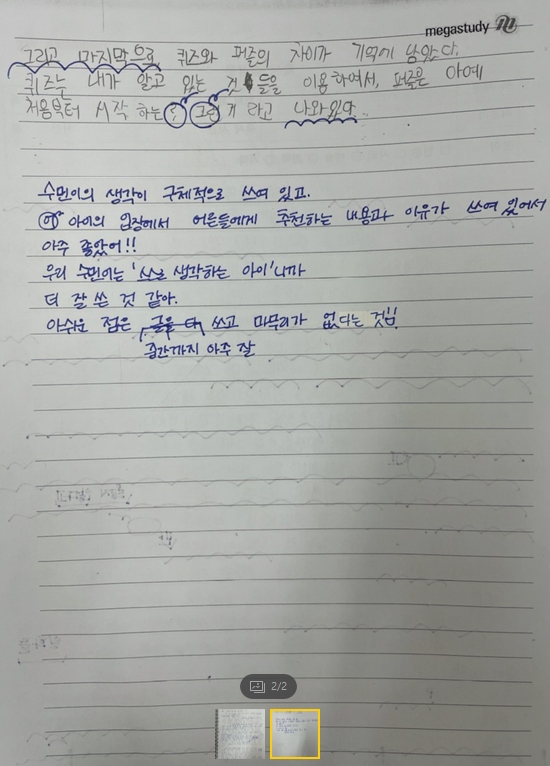 megastudy
그리고 마지막으로 퀴즈와 퍼즐의 차이가 기억에 남았다.
퀴즈는 내가 알고 있는 것들을 이용하여서, 퍼즐은 아예
처음부터 시작 하는 그런 게 라고 나와있다.
수민이의 생각이 구체적으로 쓰여 있고.
아이의 입장에서 어른들에게 추천하는 내용과 이유가 쓰여 있어서
아주 좋았어!!
우리 수민이는 '스스로 생각하는 아이'니까
더 잘 쓴 것 같아.
아쉬운 점은 글을 다 쓰고 마무리가 없다는 것!!
중간까지 아주 잘
2/2